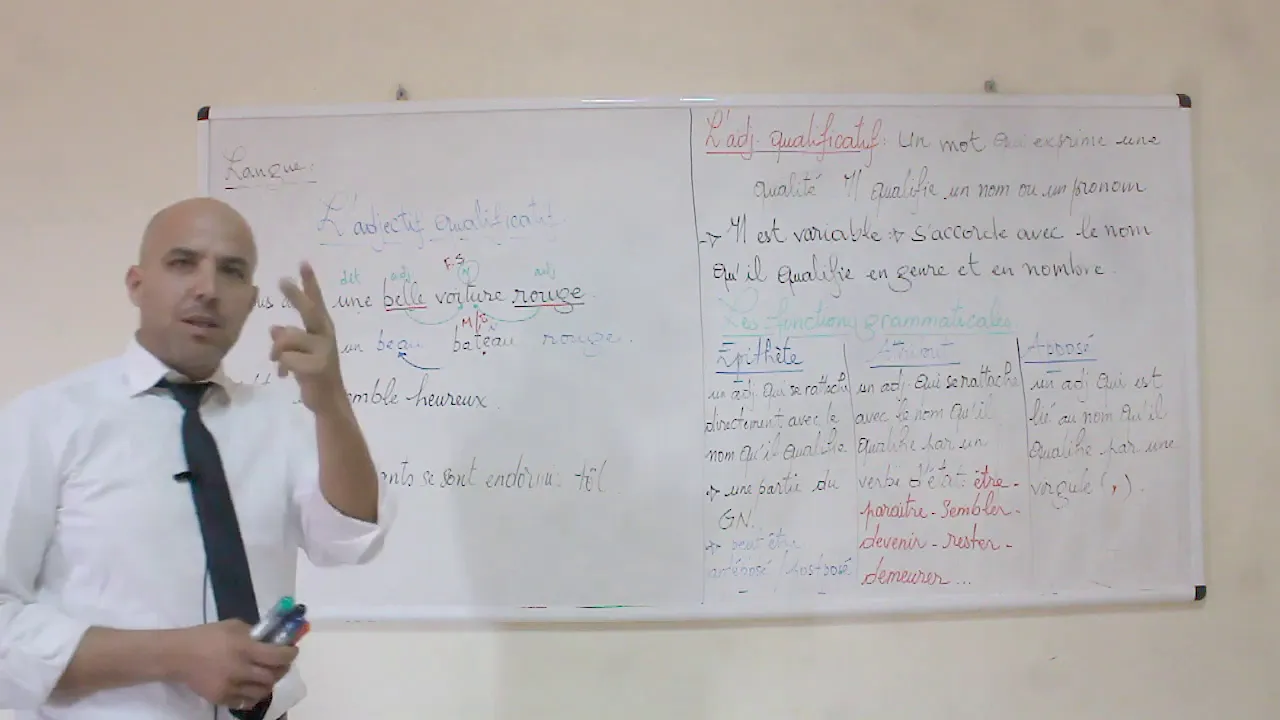 Langue:
L'adjectif qualificatif.
F.S
det adj N adj
une belle voiture rouge.
M/S
un beau bateau rouge.
semble heureux.
se sont endormis tôt.
L'adj. qualificatif: Un mot qui exprime une
qualité Il qualifie un nom ou un pronom
→ Il est variable → s'accorde avec le nom
qu'il qualifie en genre et en nombre.
Les fonctions grammaticales
Épithète
un adj. qui se rattache
directement avec le
nom qu'il qualifie
→ une partie du
GN.
→ peut être
antéposé / postposé
Attribut
un adj. qui se rattache
avec le nom qu'il
qualifie par un
verbe d'état: être-
paraître-sembler-
devenir-rester-
demeurer...
Apposé
un adj qui est
lié au nom qu'il
qualifie par une
virgule (,).